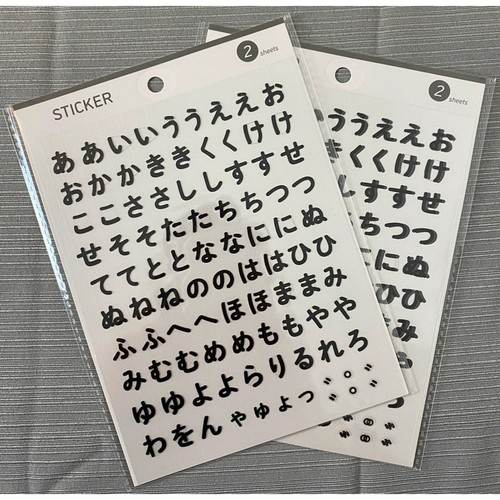 STICKER
2 sheets
ああいいううええお
おかかききくくけけ
ここささししすすせ
せそそたたちちつつ
ててととななににぬ
ぬねねののははひひ
ふふへへほほままみ
みむむめめももやや
ゆゆよよらりるれろ
わをんゃゅょっ゛゜゛゜
2 sheets
ううええお
きくくけけ
しすすせ
ちつつ
にぬ
ひひ
み
や